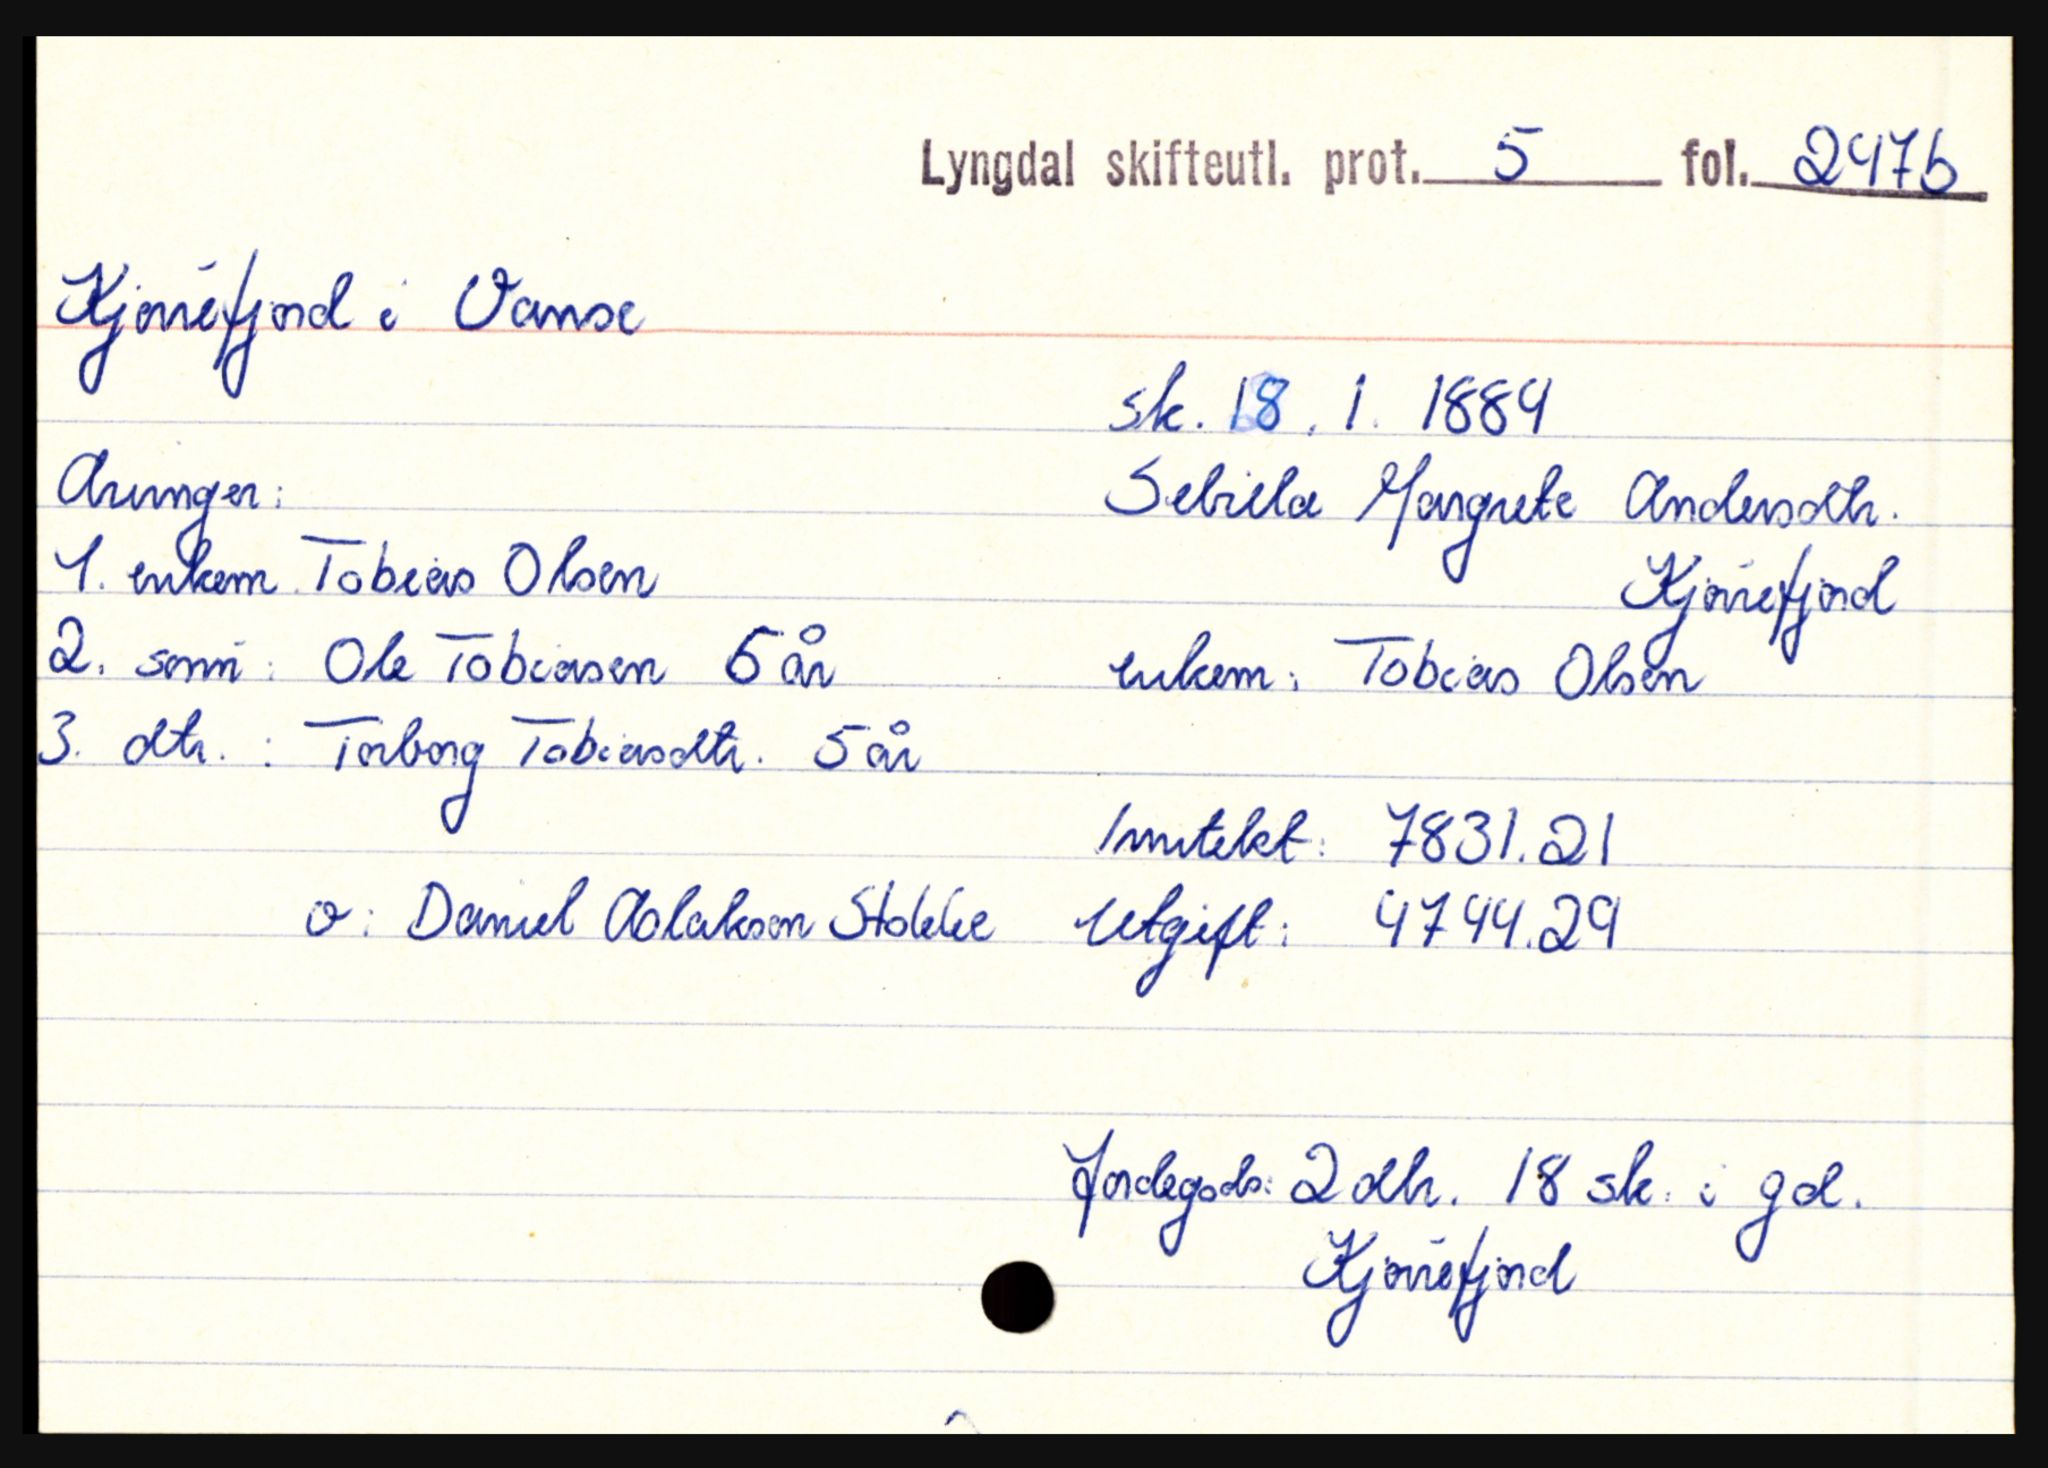 Lyngdal skifteutl. prot. 5 fol. 247b
Kjørrefjord i Vanse
sk. 18. 1. 1884
Arvinger:
Sebilla Margrete Andersdtr.
Kjørrefjord
1. enkem. Tobias Olsen
2. sønn: Ole Tobiasen 6 år
enkem: Tobias Olsen
3. dtr.: Torborg Tobiasdtr. 5 år
Inntekt: 7831.21
v: Daniel Aslaksen Stokke
Utgift: 4744.29
Jordegods: 2 dlr. 18 sk. i gd.
Kjørrefjord